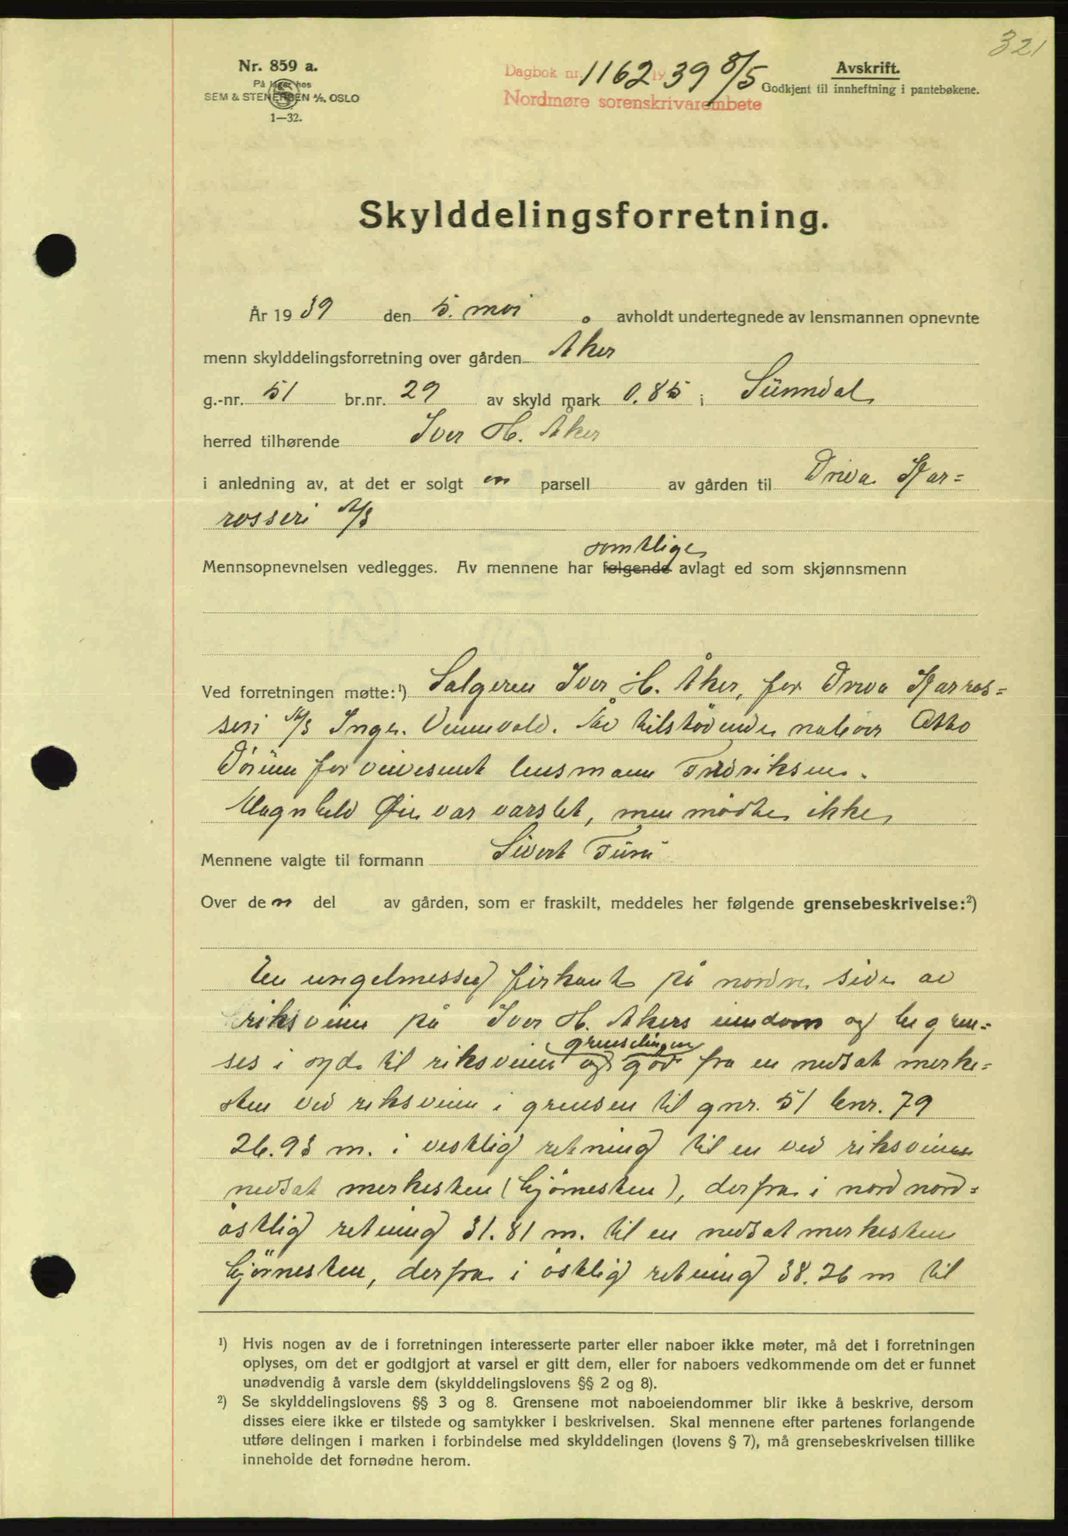 321
Nr. 859 a.
På lager hos
SEM & STENERSEN A/S, OSLO
1—32.
Dagbok nr. 1162 1939 8/5
Nordmøre sorenskrivarembete
Avskrift.
Godkjent til innheftning i pantebøkene.
Skylddelingsforretning.
År 1939 den 5. mai avholdt undertegnede av lensmannen opnevnte
menn skylddelingsforretning over gården Åker
g.-nr. 51 br.nr. 29 av skyld mark 0.85 i Sunndal
herred tilhørende Iver H. Åker
i anledning av, at det er solgt en parsell av gården til Driva Kar=
rosseri A/S
samtlige
Mennsopnevnelsen vedlegges. Av mennene har følgende avlagt ed som skjønnsmenn
Ved forretningen møtte:¹) Selgeren Iver H. Åker, for Driva Karros=
seri A/S Ingv. Vennevold. Av tilstødende naboer Otto
Dørum for veivesenet lensmann Fredriksen.
Magnhild Øie var varslet, men mødte ikke
Mennene valgte til formann Sivert Furu
Over den del av gården, som er fraskilt, meddeles her følgende grensebeskrivelse:²)
En uregelmessig firkant på nordre side av
riksveien på Iver H. Åkers eiendom og begren=
ses i syd til riksveien og grenselinjen går fra en nedsat merke=
sten ved riksveien i grensen til gnr. 51 bnr. 79
26.93 m. i vestlig retning til en ved riksveien
nedsat merkesten (hjørnesten), derfra i nord nord=
østlig retning 31.81 m. til en nedsat merkesten
hjørnesten, derfra i østlig retning 38.26 m til
¹) Hvis nogen av de i forretningen interesserte parter eller naboer ikke møter, må det i forretningen
oplyses, om det er godtgjort at varsel er gitt dem, eller for naboers vedkommende om det er funnet
unødvendig å varsle dem (skylddelingslovens §§ 2 og 8).
²) Se skylddelingslovens §§ 3 og 8. Grensene mot naboeiendommer blir ikke å beskrive, dersom
disses eiere ikke er tilstede og samtykker i beskrivelsen. Skal mennene efter partenes forlangende
utføre delingen i marken i forbindelse med skylddelingen (lovens § 7), må grensebeskrivelsen tillike
inneholde det fornødne herom.